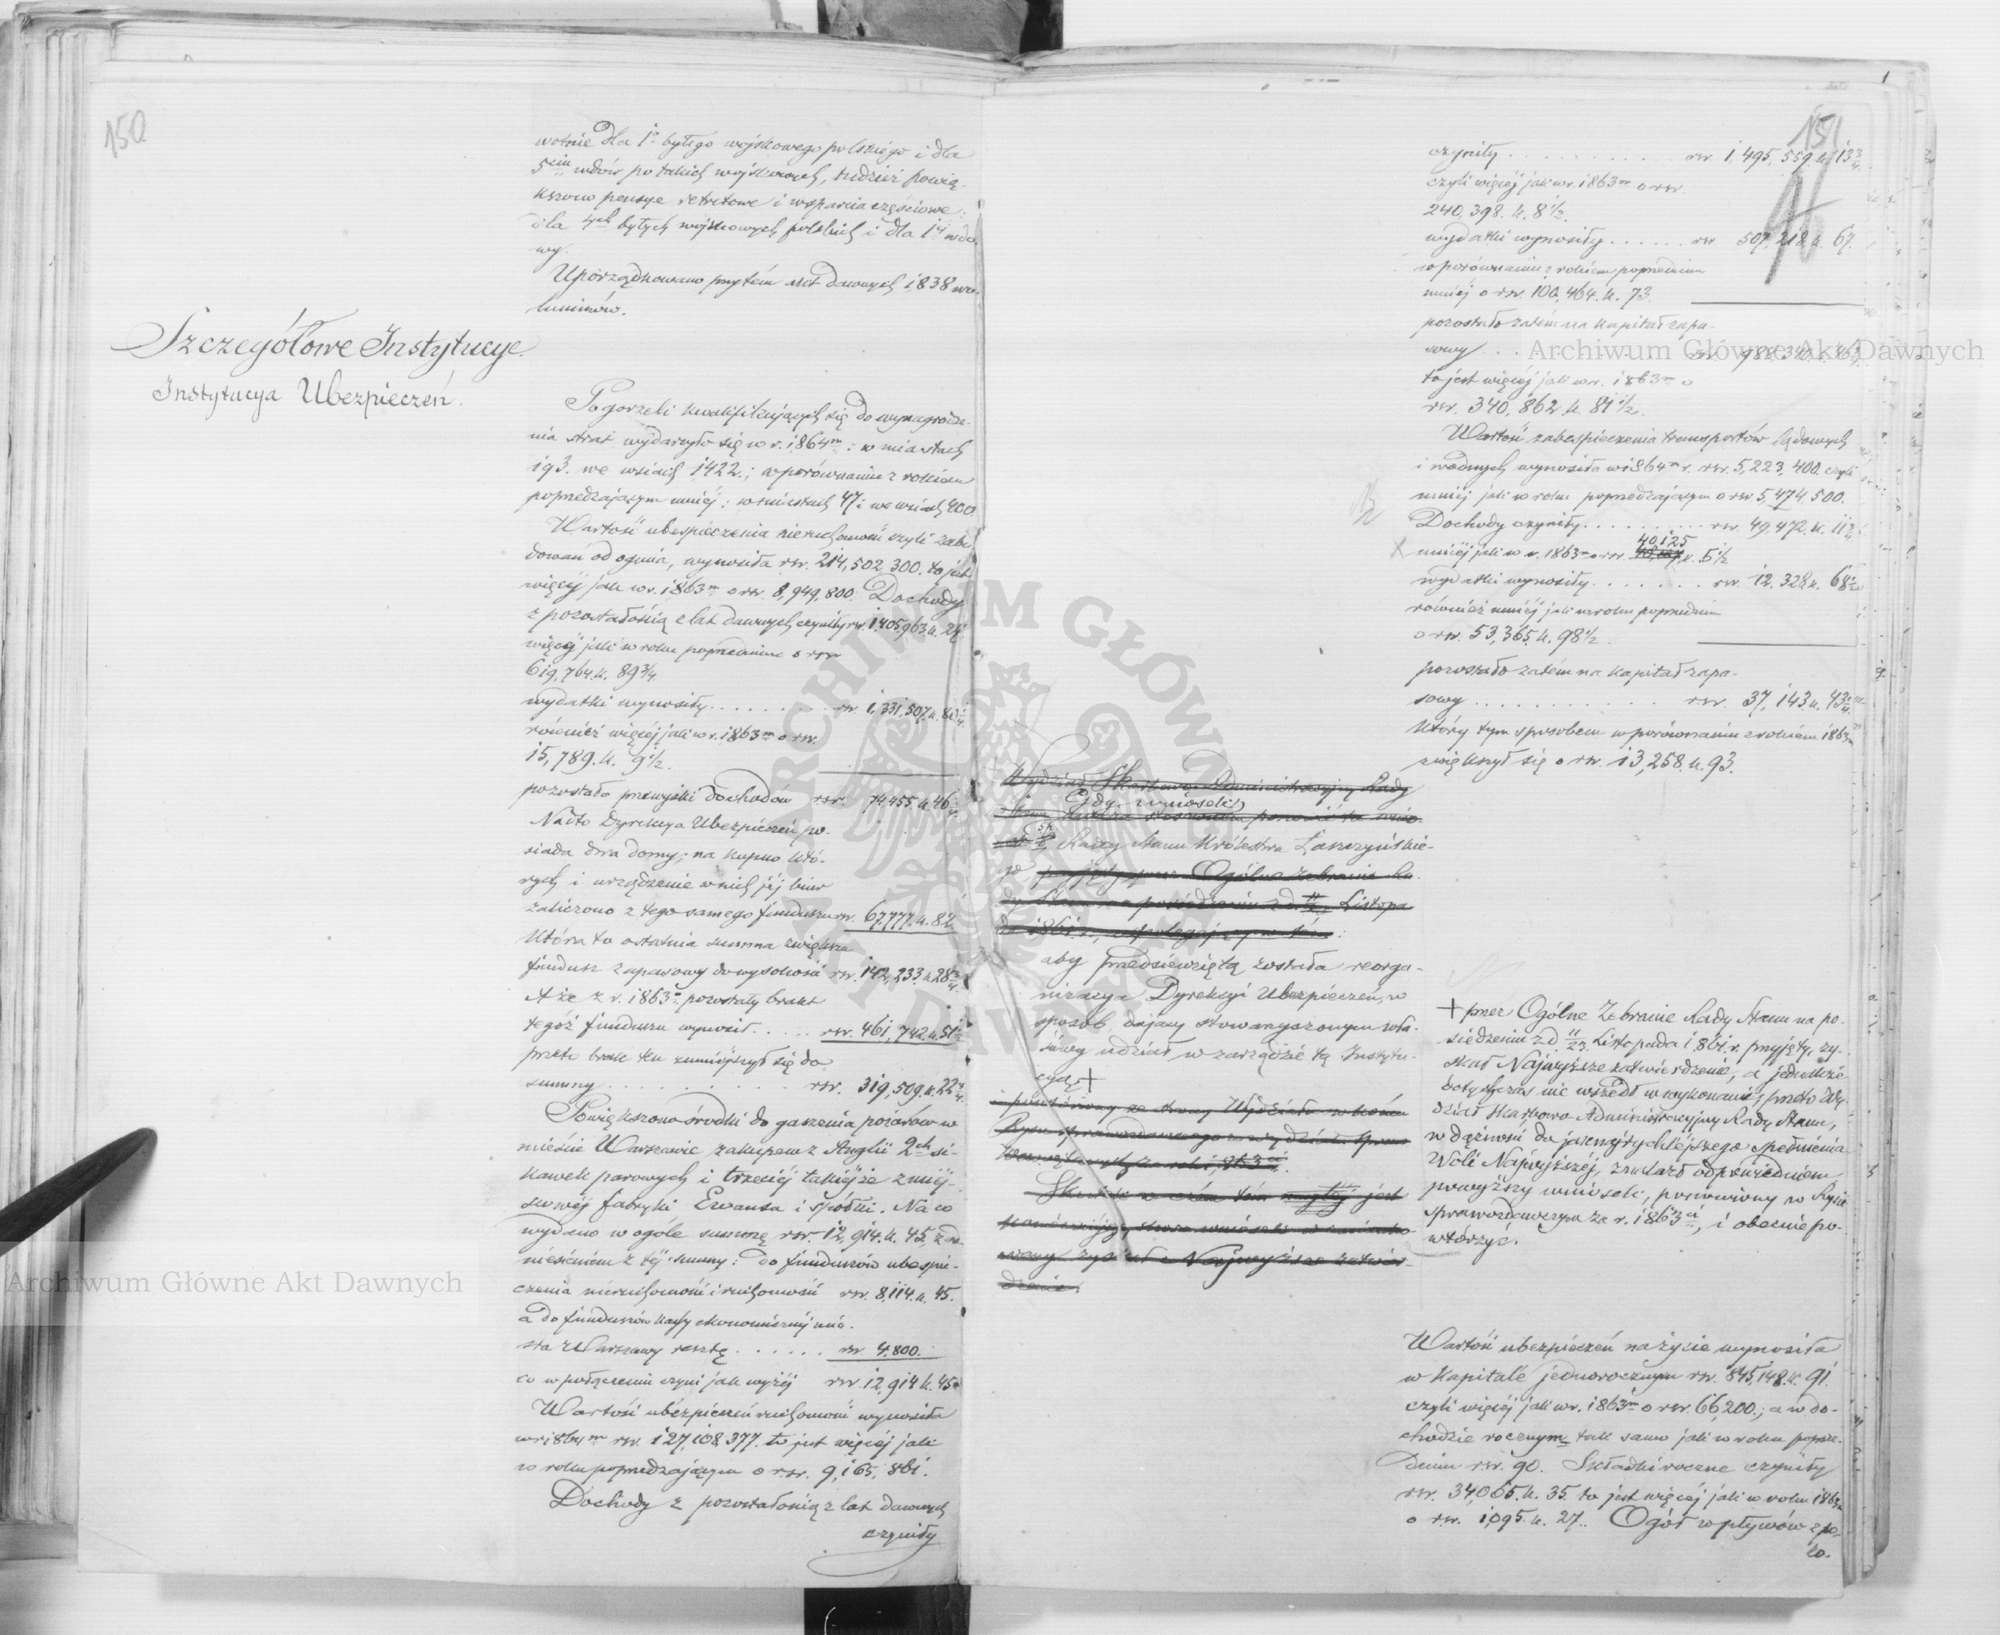 150
wotnie dla 1º byłego wojskowego polskiego i dla
5ciu wdów po takich wojskowych, tudzież powię-
kszono pensye retretowe i wsparcia częściowe:
dla 4ch byłych wojskowych polskich i dla 1éj wdo-
wy.
Uporządkowano przytém akt dawnych 1838 wo-
luminów.
Szczegółowe Instytucye.
Instytucya Ubezpieczeń.
Pogorzeli kwalifikujących się do wynagrodze-
nia strat wydarzyło się w r. 1864m: w miastach
193. we wsiach 1422.; w porównaniu z rokiem
poprzedzającym mniéj: w miastach 47 i we wsiach 400
Wartość ubezpieczenia nieruchomości czyli zabu-
dowań od ognia, wynosiła rsr. 214,502,300. to jest
więcéj jak w r. 1863m o rsr. 8,949,800. Dochody
z pozostałością z lat dawnych czyniły rsr. 1,405,963. k.
więcéj jak w roku poprzednim o rsr.
619,764. k. 89¾
wydatki wynosiły . . . . . . . . . rsr. 1,331,507. k.
również więcéj jak w r. 1863m o rsr.
15,789. k. 9½.
pozostało przewyżki dochodów rsr. 74,455. k. 46
Nadto Dyrekcya Ubezpieczeń po-
siada dwa domy; na kupno któ-
rych i urządzenie w nich jéj biur
zaliczono z tego samego funduszu rsr. 67,777. k. 82
Która to ostatnia summa zwiększa
fundusz zapasowy do wysokości rsr. 142,233. k. 28¾
A że z r. 1863m pozostały brak
tegoż funduszu wynosił . . . . rsr. 461,742. k. 51
przeto brak ten zmniéjszył się do
summy . . . . . . . . . . . rsr. 319,509. k. 22¾
Powiększono środki do gaszenia pożarów w
mieście Warszawie zakupem z Anglii 2ch si-
kawek parowych i trzeciéj takiéjże z miéj-
scowéj fabryki Ewansa i spółki. Na co
wydano w ogóle summę rsr. 12,914. k. 45, z od-
niesieniem z téj summy: do funduszów ubezpie-
czenia nieruchomości i ruchomości rsr. 8,114. k. 45.
a do funduszów kassy ekonomicznéj mia-
sta Warszawy resztę . . . . . . rsr. 4,800.
co w połączeniu czyni jak wyżéj rsr. 12,914 k. 45
Wartość ubezpieczeń ruchomości wynosiła
w r. 1864m rsr. 127,108,377. to jest więcéj jak
w roku poprzedzającym o rsr. 9,165,861.
Dochody z pozostałością z lat dawnych
czyniły
1
151
czyniły . . . . . . . . . . rsr. 1,495,559. k. 13¾
czyli więcéj jak w r. 1863m o rsr.
240,398. k. 8½.
wydatki wynosiły . . . . . . rsr. 507,218. k. 67.
w porównaniu z rokiem poprzednim
mniéj o rsr. 100,464. k. 73.
pozostało zatém na kapitał zapa-
sowy . . .
to jest więcéj jak w r. 1863m o
rsr. 340,862. k. 81½.
Wartość zabezpieczenia transportów lądowych
i wodnych wynosiła w 1864m r. rsr. 5,223,400. czyli
mniéj jak w roku poprzedzającym o rsr. 5,474,500.
Dochody czyniły . . . . . . . . . rsr. 49,472. k. 11¾
40,125
X mniéj jak w r. 1863m o rsr. k. 5½
wydatki wynosiły . . . . . . . rsr. 12,328. k. 68½
również mniéj jak w roku poprzednim
o rsr. 53,365. k. 98½.
pozostało zatém na kapitał zapa-
sowy . . . . . . . . . . . rsr. 37,143. k. 43
który tym sposobem w porównaniu z rokiem 1863m
zwiększył się o rsr. 13,258. k. 93.
Wydział Skarbowo Administracyjny Rady
Gdy wniosek
Stanu
Radcy Stanu Królestwa Łaszczyńskie-
go przyjęty przez Ogólne Zebranie Ra-
dy Stanu na posiedzeniu z d. Listopa-
da 1861 r., a polegający na tém:
aby przedsięwziętą została reorga-
nizacya Dyrekcyi Ubezpieczeń, w
sposób dający stowarzyszonym wła-
ściwy udział w zarządzie tą Instytu-
cyą +
ponowiony ze strony Wydziału w końcu
Rysu sprawozdawczego
za rok 1863ci.
jest
Najwyższe zatwier-
dzenie.
+ przez Ogólne Zebranie Rady Stanu na po-
siedzeniu z d. 11/23 Listopada 1861 r. przyjęty, zy-
skał Najwyższe zatwierdzenie, a jednakże
dotychczas nie wszedł w wykonanie, przeto Wy-
dział Skarbowo Administracyjny Rady Stanu,
w dążności do jaknajrychlejszego spełnienia
Woli Najwyższéj, znalazł odpowiedniém
powyższy wniosek, ponowiony w Rysie
sprawozdawczym za r. 1863ci, i obecnie po-
wtórzyć.
Wartość ubezpieczeń na życie wynosiła
w kapitale jednorocznym rsr. 845,148. k. 91.
czyli więcéj jak w r. 1863m o rsr. 66,200.; a w do-
chodzie rocznym tak samo jak w roku poprze-
dnim rsr. 90. Składki roczne czyniły
rsr. 34,065. k. 35. to jest więcéj jak w roku 1863m
o rsr. 1,095. k. 27. Ogół wpływów z po-
zo-
Archiwum Główne Akt Dawnych
Archiwum Główne Akt Dawnych
ARCHIWUM GŁÓWNE AKT DAWNYCH